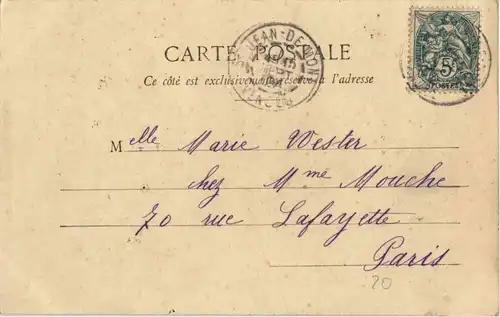 CARTE POSTALE
Ce côté est exclusivement réservé à l'adresse
JEAN-DE-MON
5
POSTES
Melle Marie Wester
chez Mme Mouche
70 rue Lafayette
Paris
20